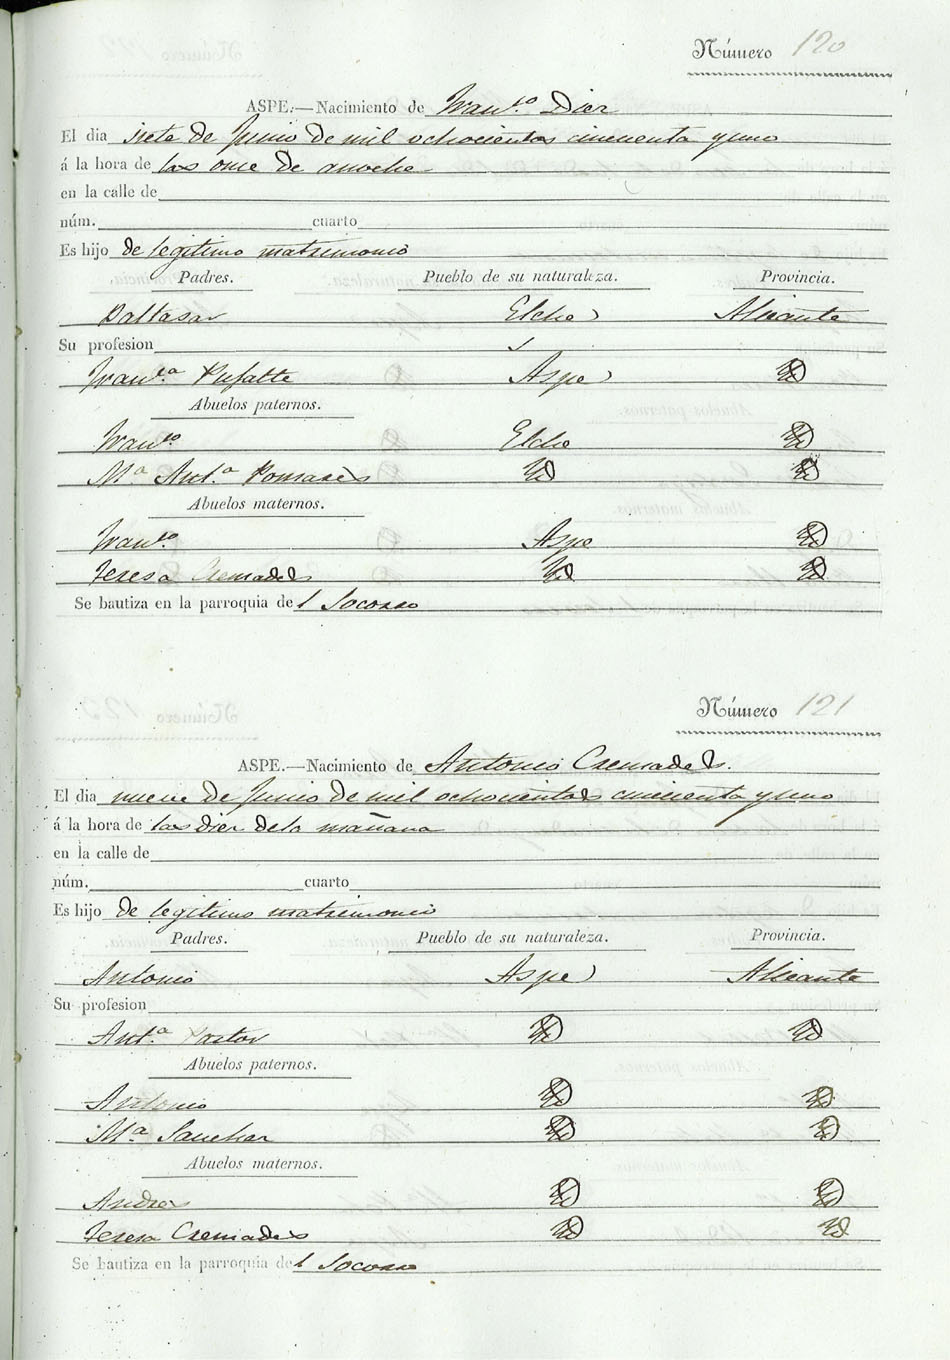 Número 120
ASPE.—Nacimiento de Franco. Dier
El dia siete de Junio de mil ochocientos cincuenta y uno
á la hora de las once de anoche
en la calle de
núm. cuarto
Es hijo de legitimo matrimonio
Padres. Pueblo de su naturaleza. Provincia.
Baltasar Elche Alicante
Su profesion
Franca. Pufalte Aspe Yd
Abuelos paternos.
Franco. Elche Yd
Ma Anta. Pomares Yd Yd
Abuelos maternos.
Franco. Aspe Yd
Teresa Cremades Yd Yd
Se bautiza en la parroquia del Socorro
Número 121
ASPE.—Nacimiento de Antonio Cremades.
El dia nueve de Junio de mil ochocientos cincuenta y uno
á la hora de las dier de la mañana
en la calle de
núm. cuarto
Es hijo de legitimo matrimonio
Padres. Pueblo de su naturaleza. Provincia.
Antonio Aspe Alicante
Su profesion
Anta. Pastor Yd Yd
Abuelos paternos.
Antonio Yd Yd
Ma Sanchez Yd Yd
Abuelos maternos.
Andres Yd Yd
Teresa Cremades Yd Yd
Se bautiza en la parroquia del Socorro